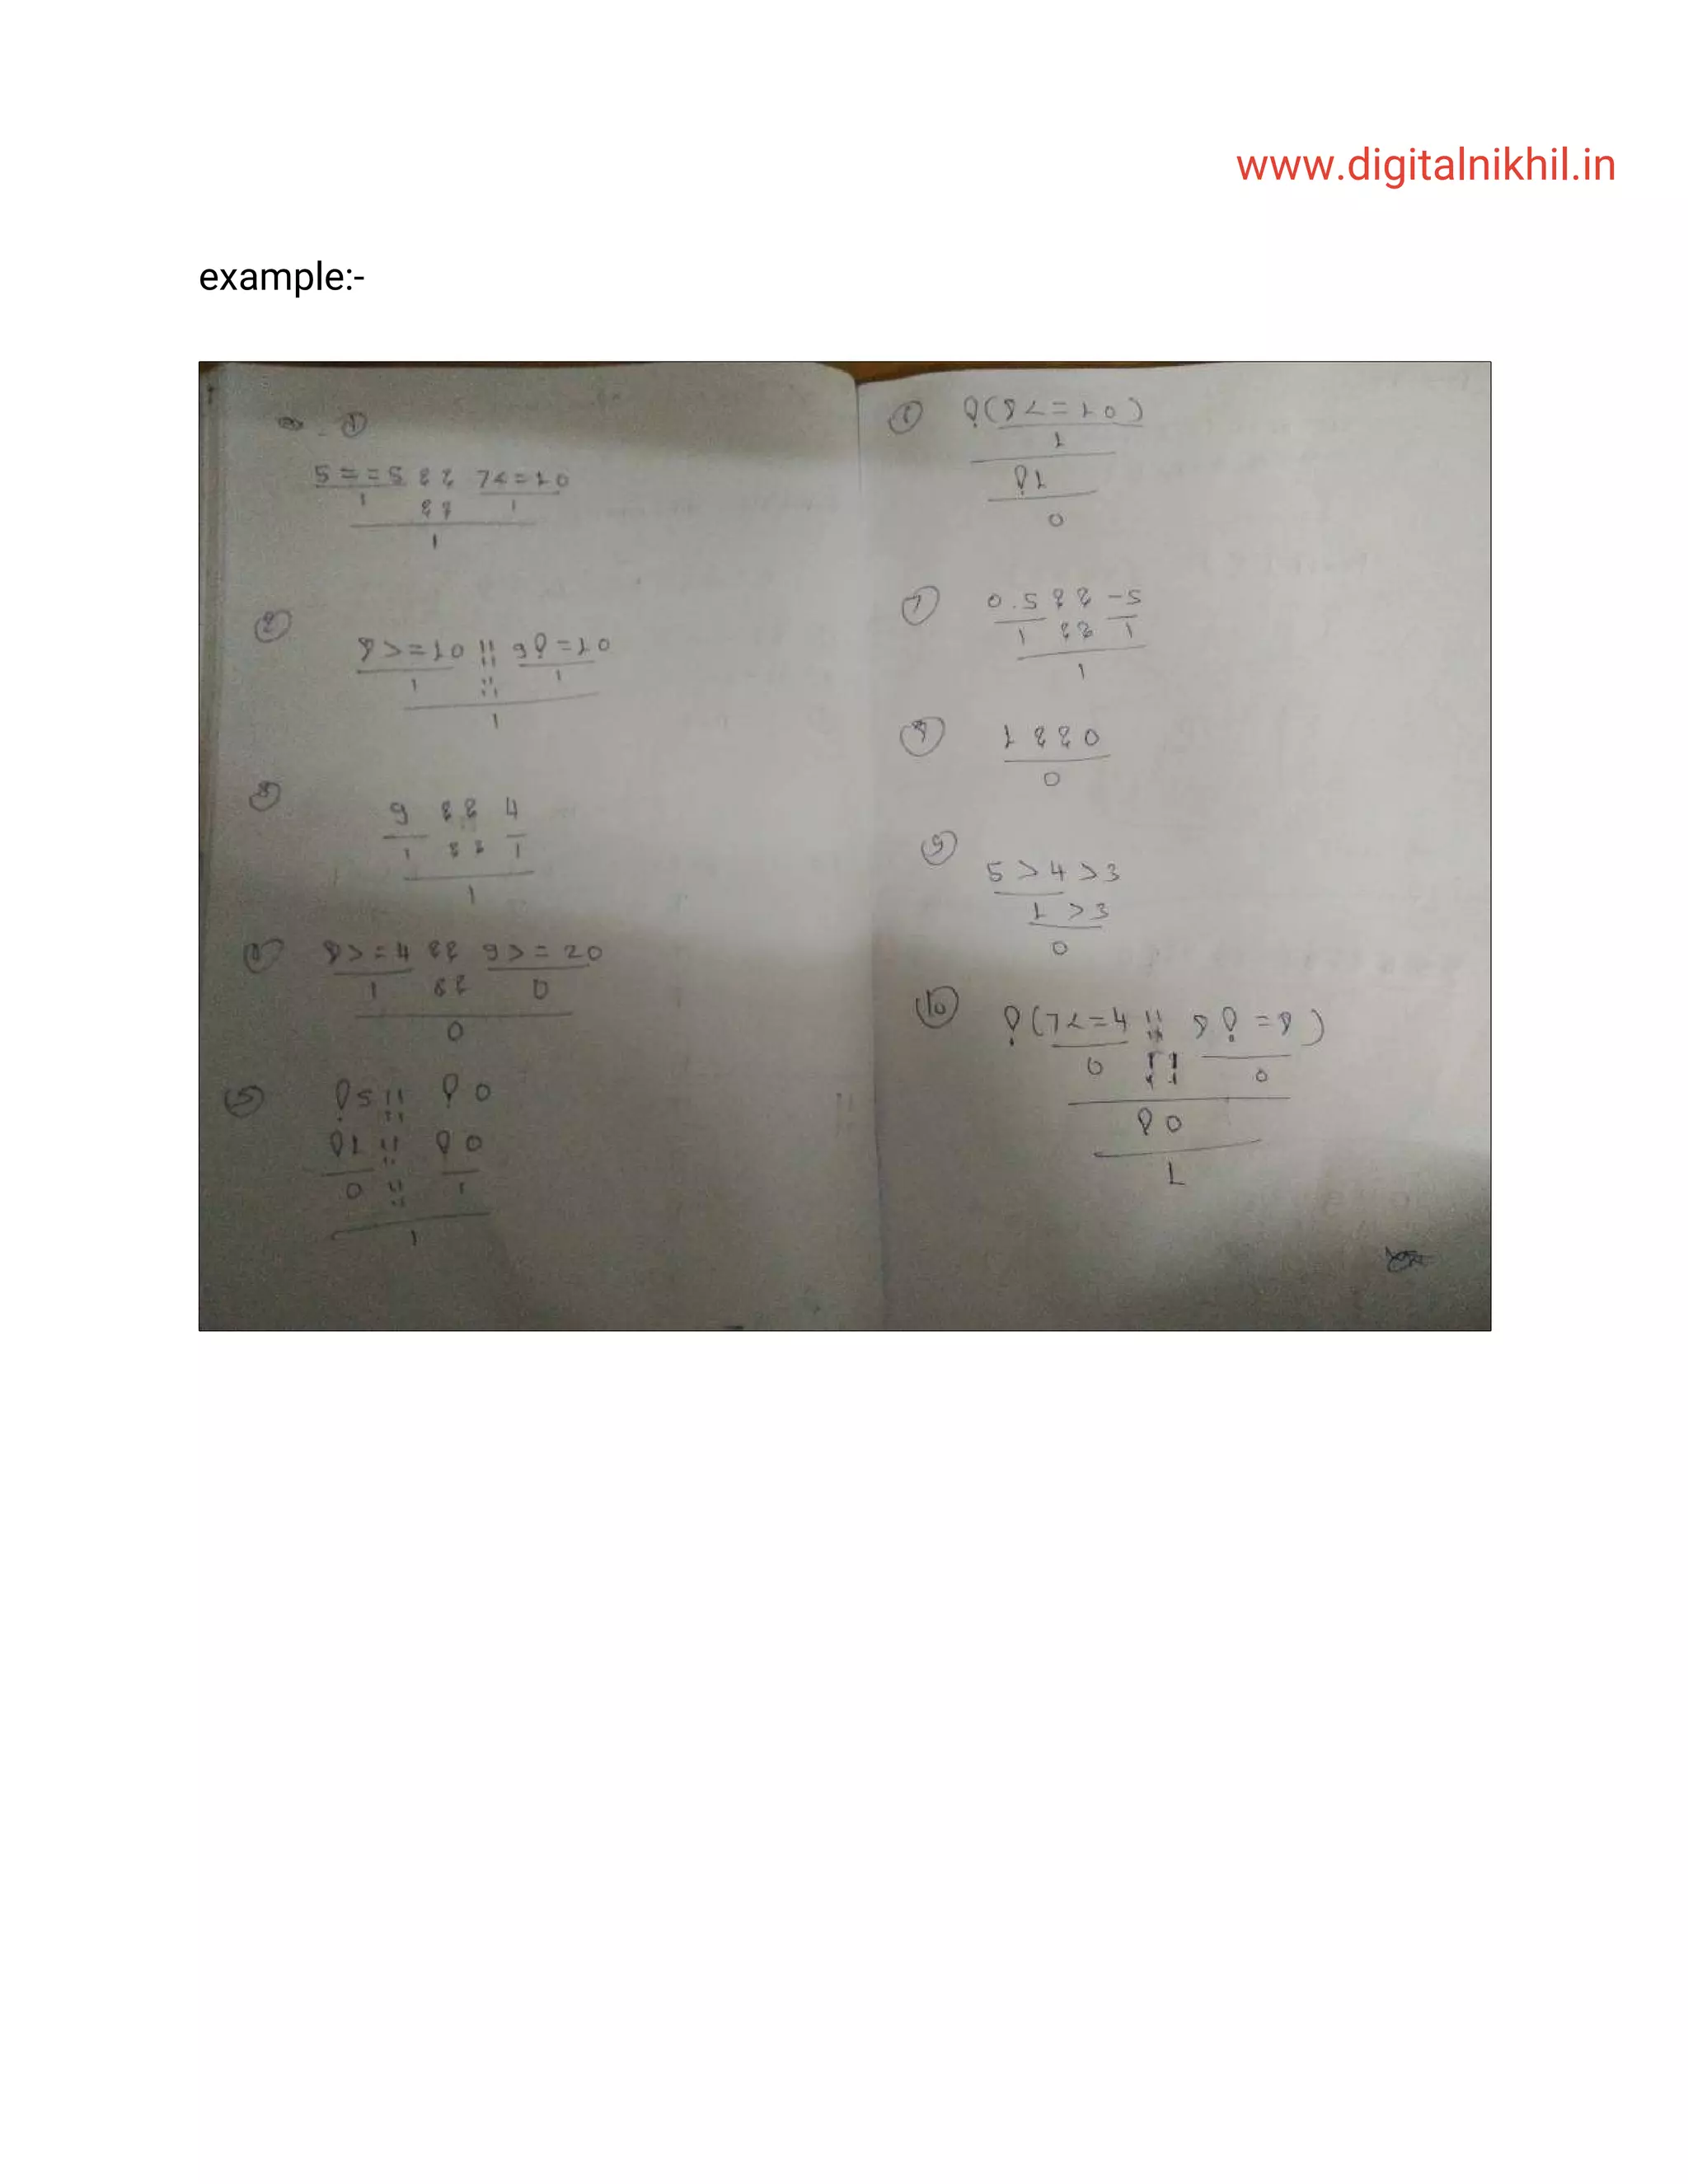 www.digitalnikhil.in
example:-
①
5==5 && 7<=10
1 && 1
1
②
8>=10 || 9!=10
1 || 1
1
③
9 && 4
1 && 1
1
8>=4 && 9>=20
1 && 0
0
⑤
!5 || !0
!1 || !0
0 || 1
1
⑥
!(8<=10)
1
!1
0
⑦
0.5 && -5
1 && 1
1
⑧
1 && 0
0
⑨
5>4>3
1>3
0
⑩
!(7<=4 || 8!=8)
0 || 0
!0
1